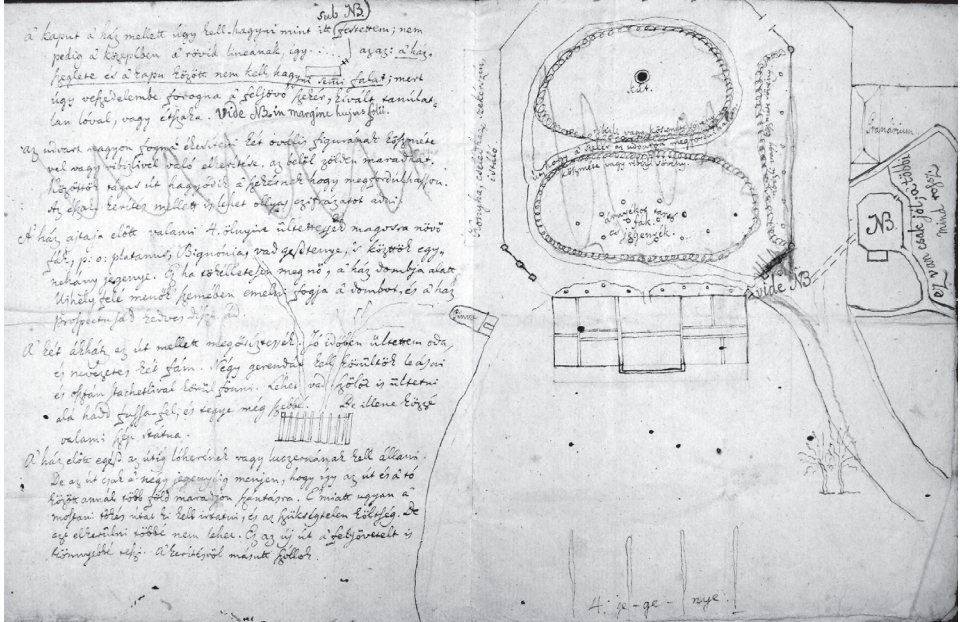 sub NB.
a' kaput a' ház mellett úgy kell hagyni mint itt festettem; nem
pedig a' középben a' rövid lineanak, így . . . . azaz: a' ház
szeglete és a' kapu között nem kell hagyni semi falat; mert
úgy veszedelembe forogna a' feljövő szekér, kivált tanúlat-
lan lóval, vagy étszaka. Vide NB. in margine hujus folii.
Az udvart nagyon fogná ékesíteni két ovális figurának köszméte
vel vagy ribizlivel való elkerítése, az belől zölden maradhat.
Közöttök tágas út hagyódik a' szekérnek hogy megfordulhasson.
Az kerítés mellett is lehet ollyas czifrázatot adni.
A' ház ajtaja előtt valami 4. ölnyire ültettessék magosra növő
fák, p: o: platanus, Bignónia, vad gesztenye, 's köztök egy-
nehány jegenye. Ez ha tökélletesen megnő, a' ház dombja alatt
Ujhely felé menők szemében emelni fogja a' dombot, és a' ház
prospectusát kedvesítt ád.
A' két ákház az út mellett megőriztessék. Jó időben ültettem oda,
és nevezetes két fám. Négy gerendát kell körültök le ásni
és osztán stachettával körül fonni. Lehet vad szőlőt is ültetni
alá hadd fussa fel, és tegye még szebbé. De illene közzé
valami szép statua.
A' ház előtt egész az útig lóherének vagy luczernának kell állani.
De az út csak a' négy jegenyéig menjen, hogy így az út és a' tó
között annál több föld maradjon szántásra. E' miatt ugyan a'
mostani tőkés útat ki kell irtatni, és az szükségtelen költség. De
ezt elkerülni többé nem lehet. Ez az új út a' feljövetelt is
könnyebbé teszi. A' kerítésről másutt szóllok.
Konyha, cselédház, szekérszin,
istálló
kút.
vagy köszméte
hogy a' szekér az udvaron megfordulhasson
köszméte vagy ribizli sövény
fák
vide NB.
Granárium
NB.
Ez van csak jól, a' többi
mind rossz
Pincze
4. je-ge-nye.